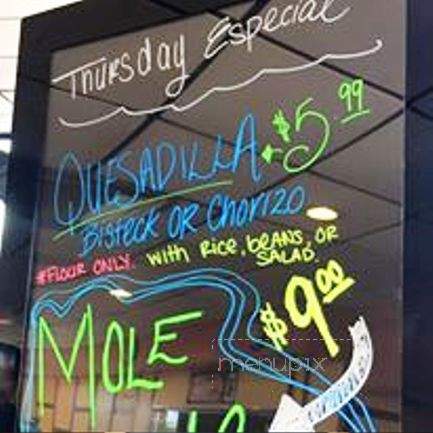 Thursday Especial
QUESADILLA $5.99
Bisteck OR Chorizo
*FLOUR ONLY. with Rice, beans, OR
SALAD
MOLE $9.00
menupix